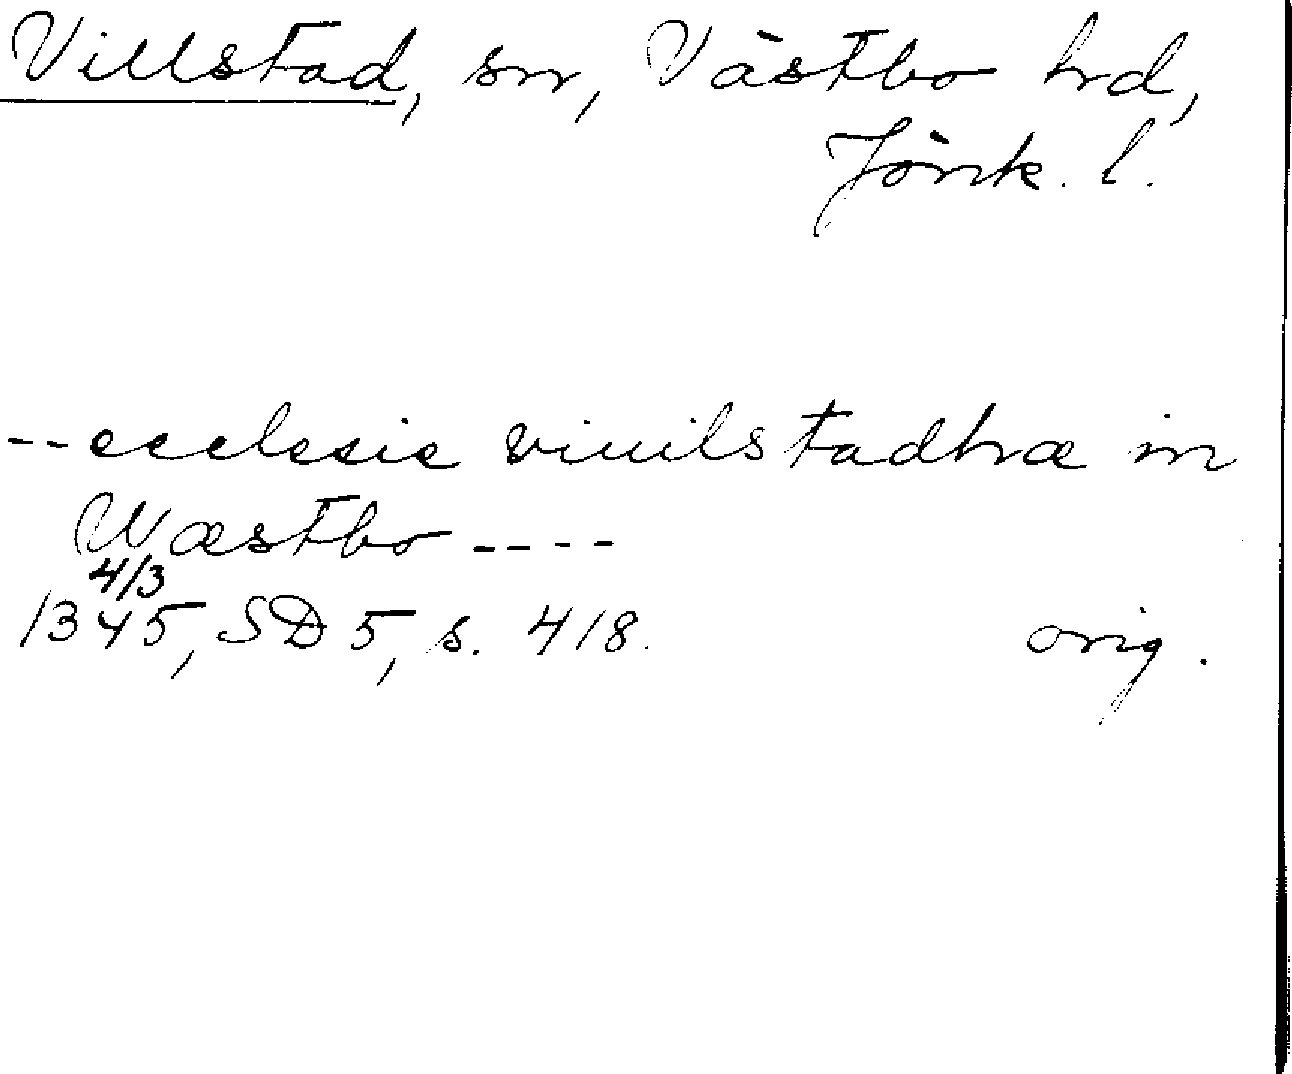 Villstad, sn, Västbo hd,
Jönk. l.
--ecclesie viuilstadhæ in
Wæstbo ----
4/3
1345, SD 5, s. 418. orig.